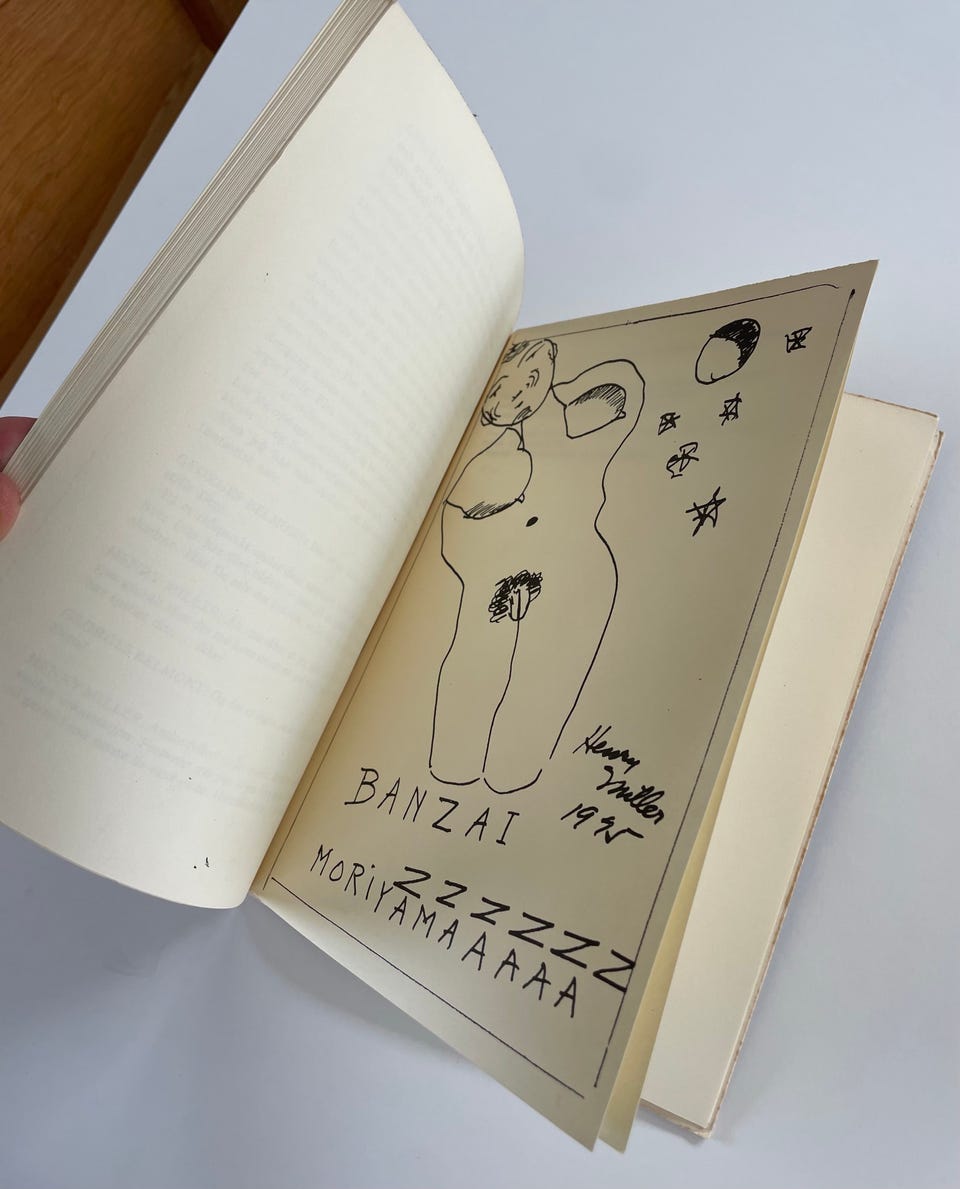 Henry
Miller
1995
BANZAI
ZZZZZZ
MORiYAMAAAAA